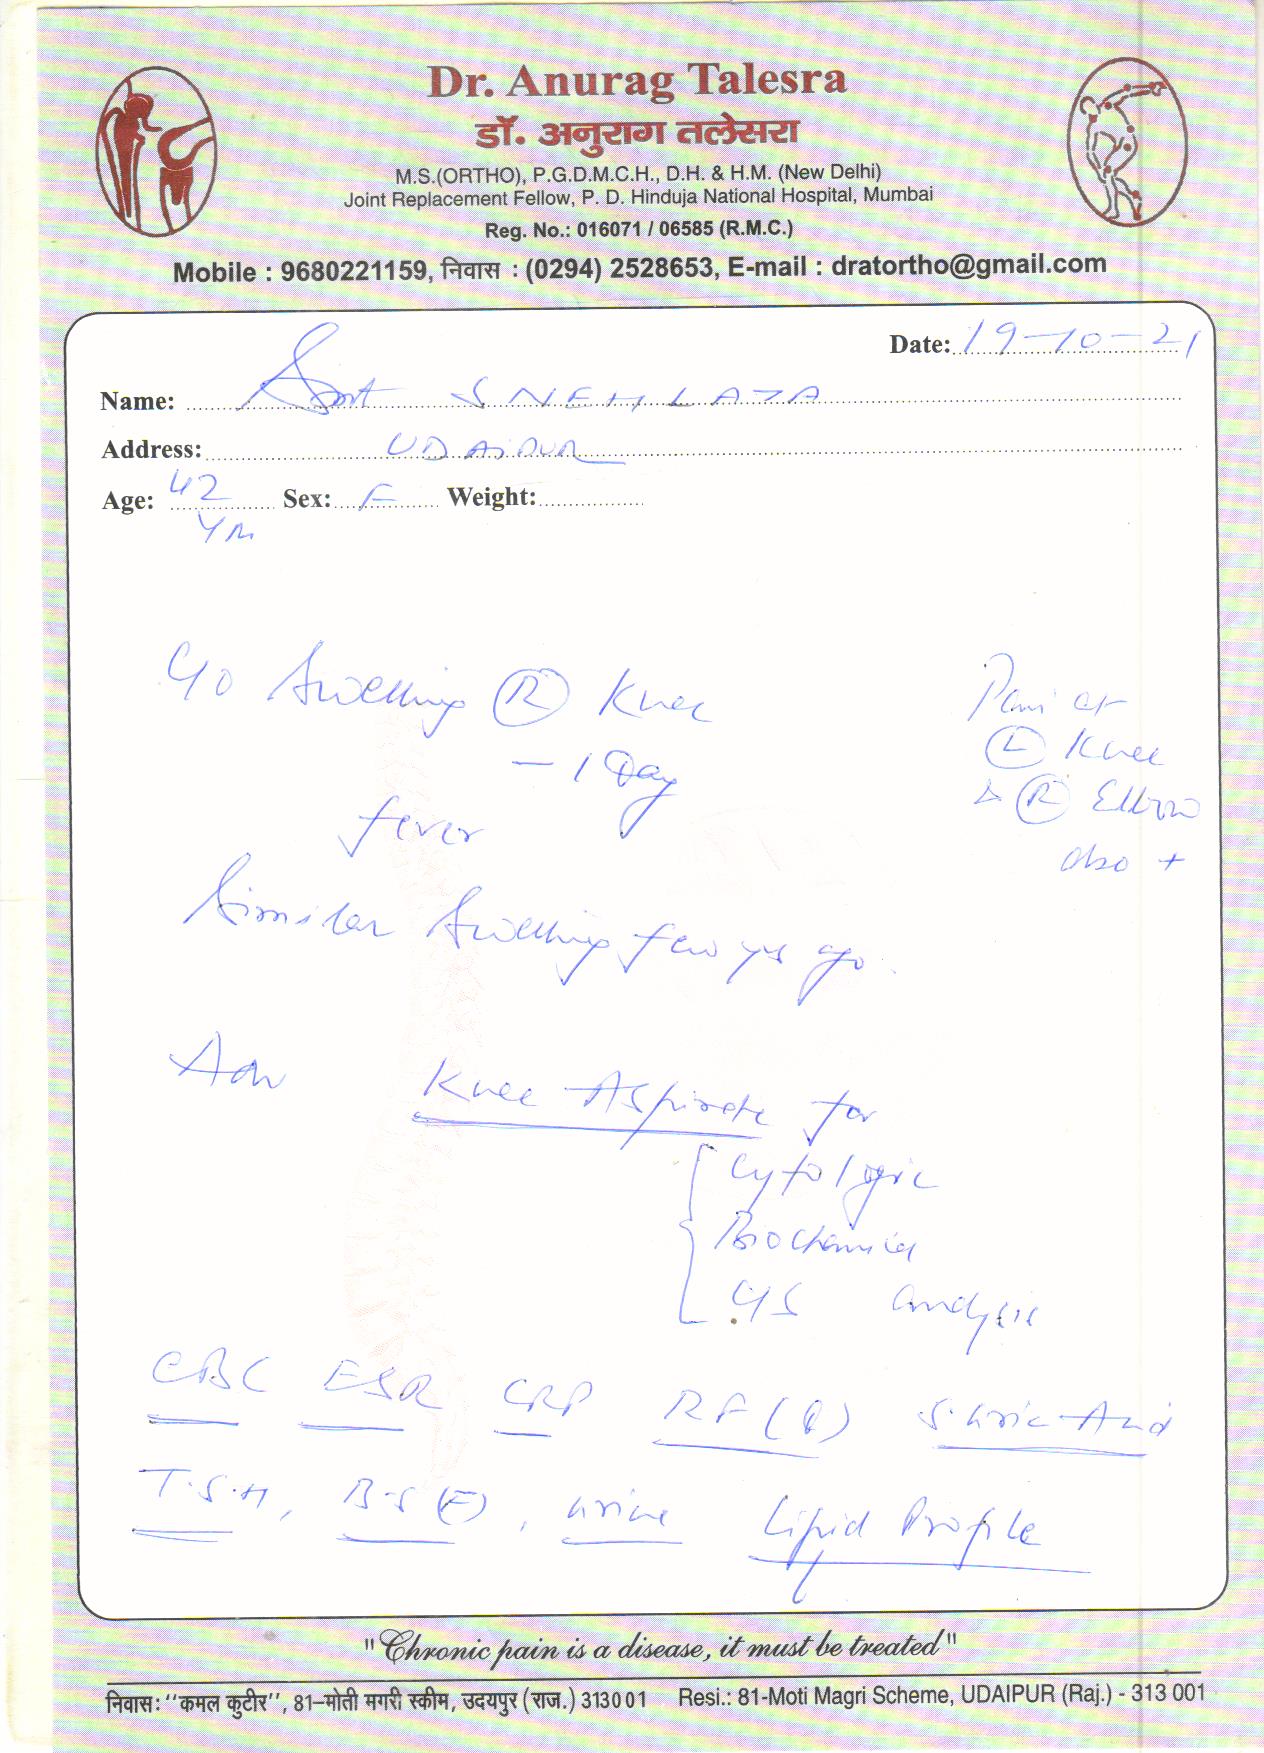 Dr. Anurag Talesra
डॉ. अनुराग तलेसरा
M.S.(ORTHO), P.G.D.M.C.H., D.H. & H.M. (New Delhi)
Joint Replacement Fellow, P. D. Hinduja National Hospital, Mumbai
Reg. No.: 016071 / 06585 (R.M.C.)
Mobile : 9680221159, निवास : (0294) 2528653, E-mail : dratortho@gmail.com
Date: 19-10-21
Name: Smt SNEHLATA
Address: UDAIPUR
Age: 42 Sex: F Weight:
Yrs
C/o Swelling (R) Knee
- 1 Day
fever
Pain at
(L) Knee
& (R) Elbow
also +
Similar Swelling few yrs ago.
Adv Knee Aspirate for
Cytologic
Biochemical
C/S analysis
CBC ESR CRP RF (Q) S. Uric Acid
T.S.H, B.S (F), Urine Lipid Profile
"Chronic pain is a disease, it must be treated"
निवास: "कमल कुटीर", 81-मोती मगरी स्कीम, उदयपुर (राज.) 313001 Resi.: 81-Moti Magri Scheme, UDAIPUR (Raj.) - 313 001